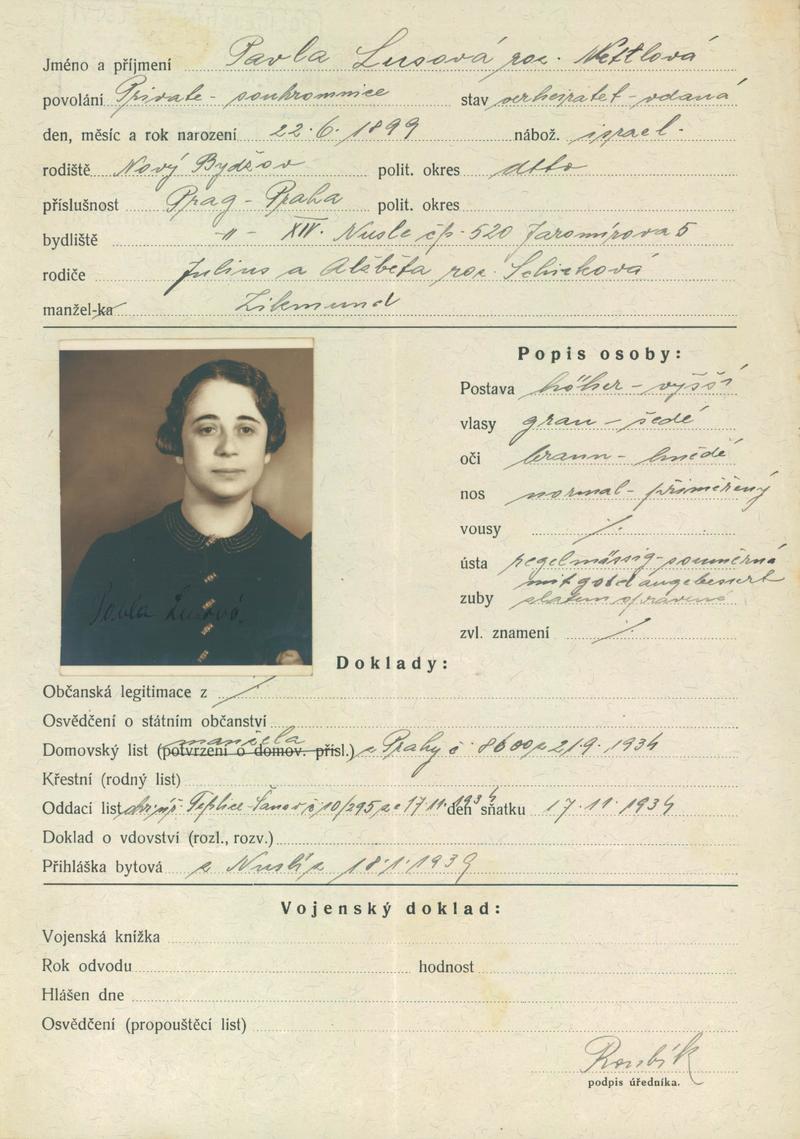 Jméno a příjmení Pavla Lusová roz. Nettlová
povolání Private - soukromnice stav verheiratet - vdaná
den, měsíc a rok narození 22.6.1899 nábož. israel.
rodiště Nový Bydžov polit. okres dtto
příslušnost Prag - Praha polit. okres
bydliště -"- XIV. Nusle čp. 520 Jaromírova 5
rodiče Julius a Alžběta roz.
manžel-ka Zikmund
Popis osoby:
Postava höher - vyšší
vlasy grau - šedé
oči braun - hnědé
nos normal - přiměřený
vousy /.
ústa regelmässig - souměrná
mit gold ausgebessert
zuby zlatem spravené
zvl. znamení /.
Pavla Lusová.
Doklady:
Občanská legitimace z /
Osvědčení o státním občanství
manžela
Domovský list (potvrzení o domov. přísl.) z Prahy č. 8600 z 21.9.1934
Křestní (rodný list)
Oddací list Teplice-Šanov č 10/295 ze 17.11.1934 den sňatku 17.11.1934
Doklad o vdovství (rozl., rozv.)
Přihláška bytová z Nuslí z 18.1.1939
Vojenský doklad:
Vojenská knížka
Rok odvodu hodnost
Hlášen dne
Osvědčení (propouštěcí list)
Roubík
podpis úředníka.